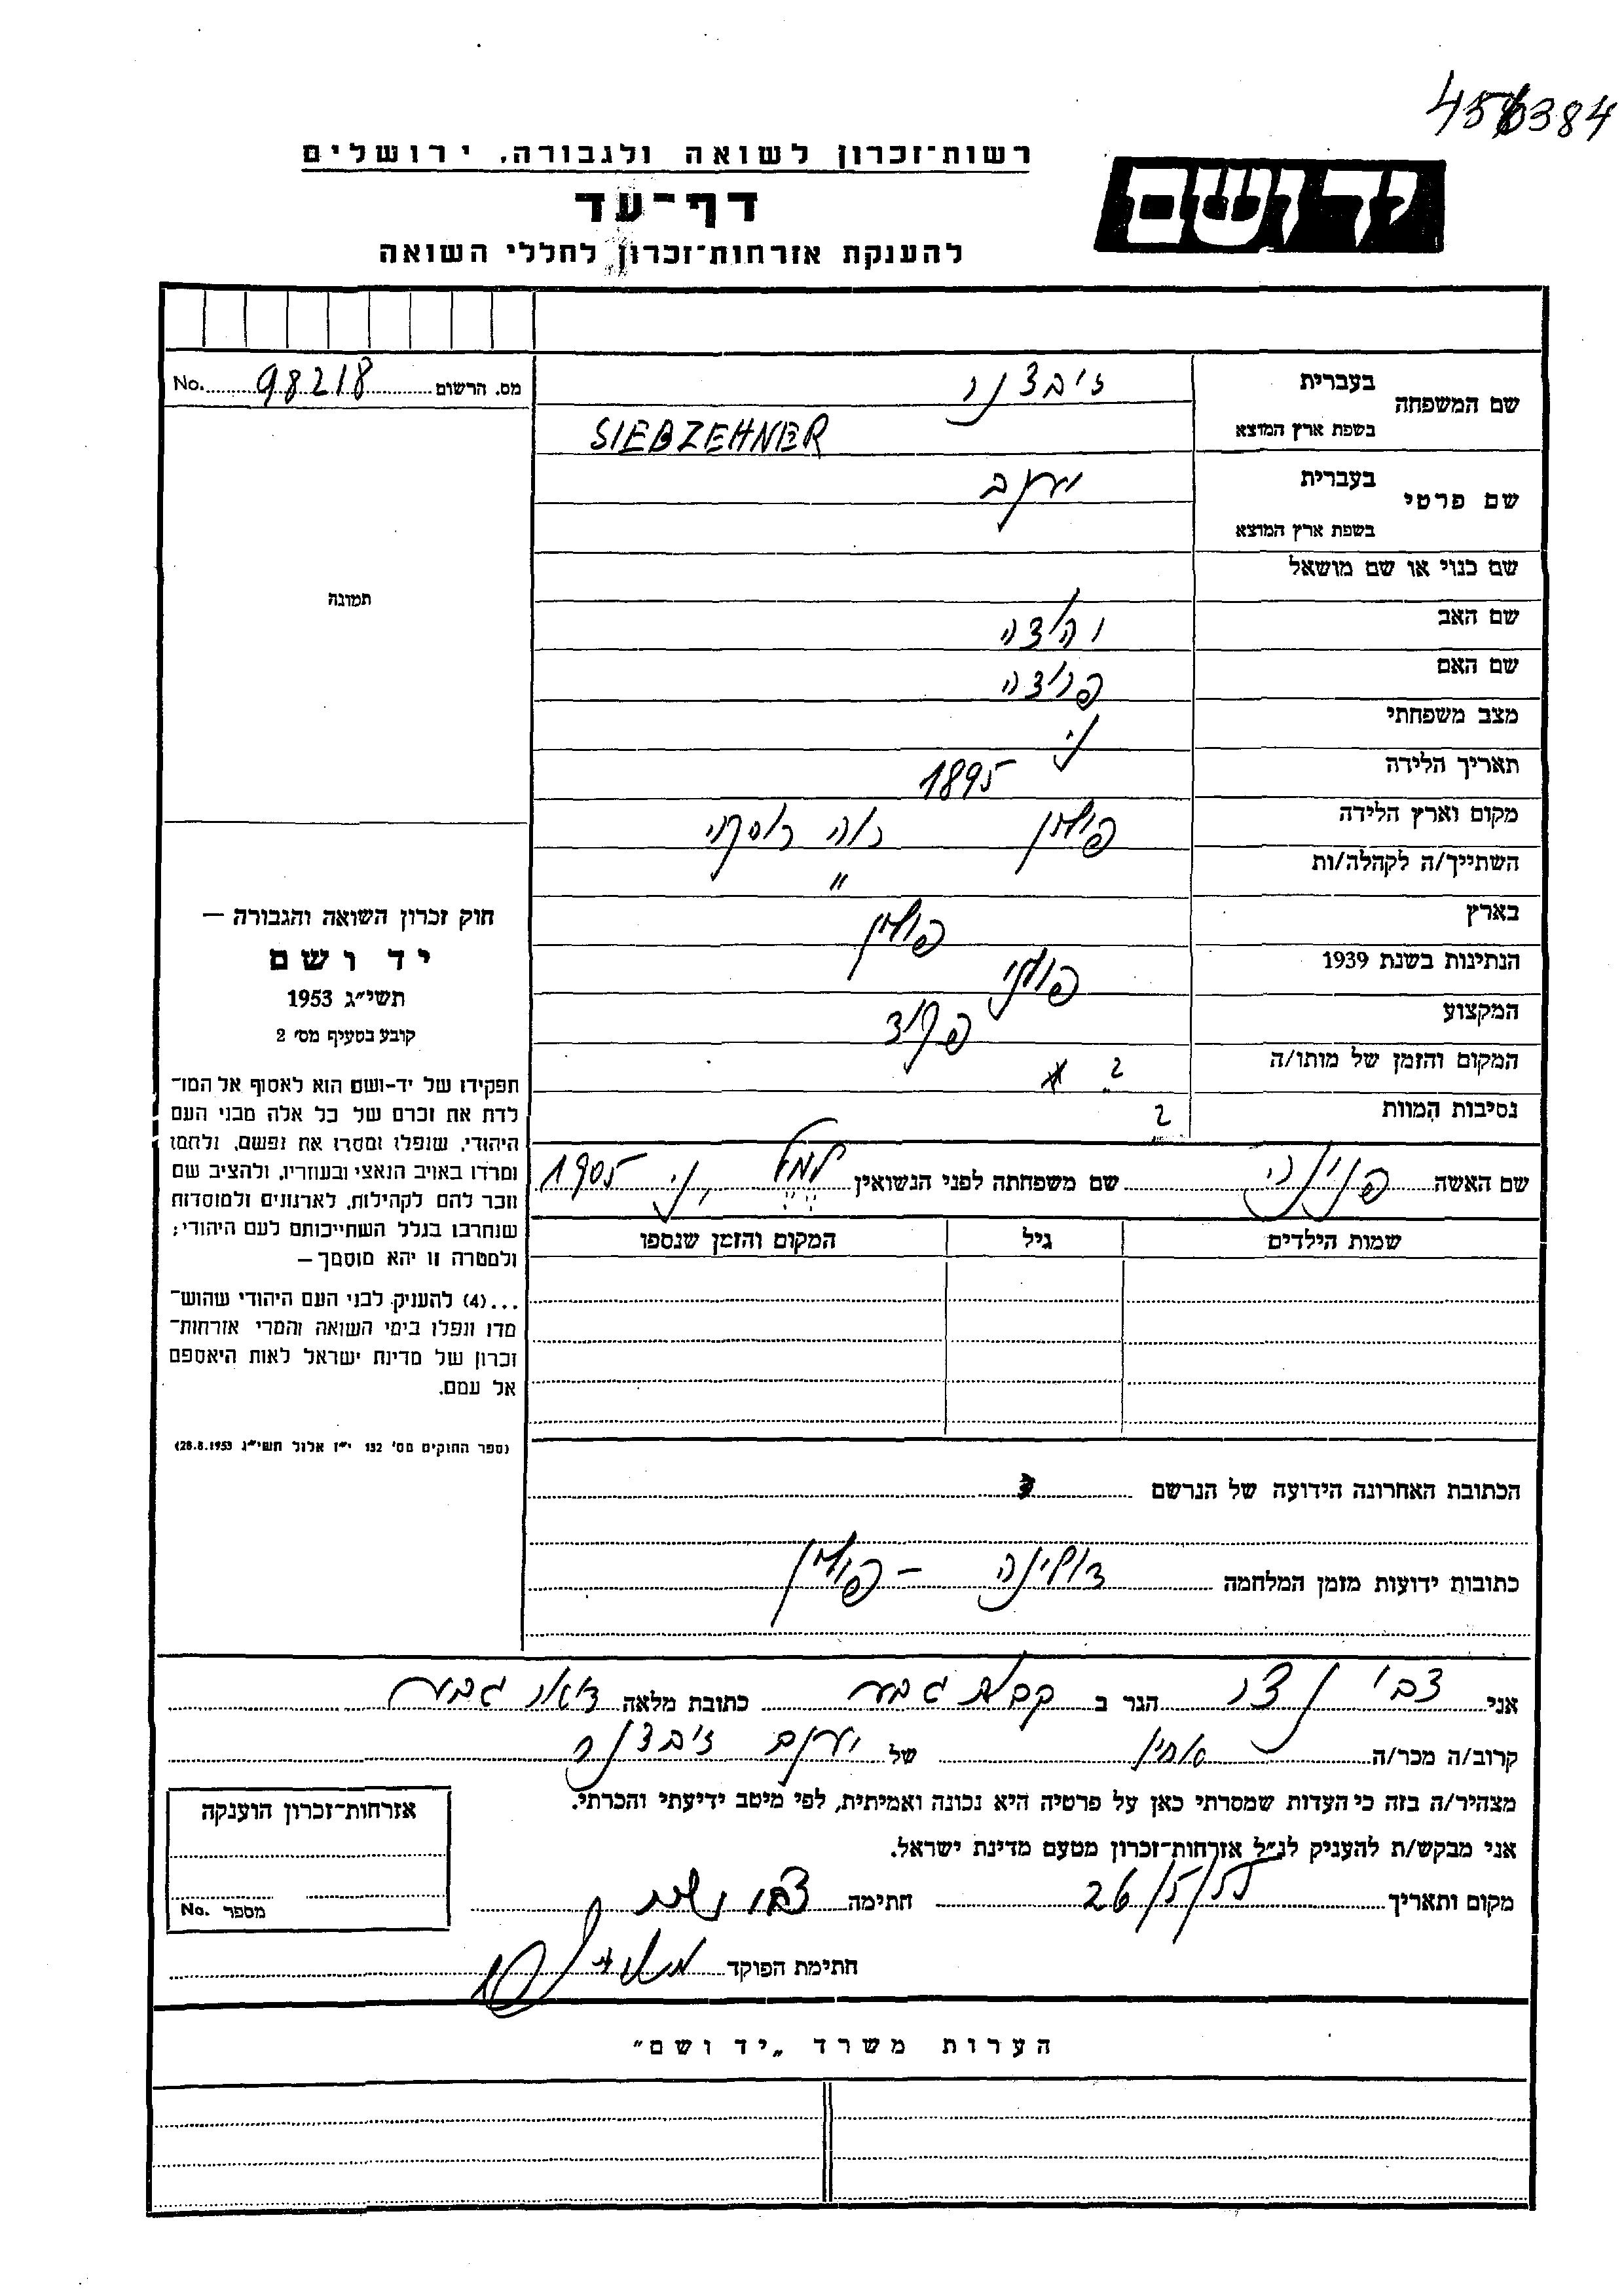 456384
רשות־זכרון לשואה ולגבורה, ירושלים
יד ושם
דף־עד
להענקת אזרחות־זכרון לחללי השואה
מס. הרשום 98218 No.
שם המשפחה בעברית זיבצנר
בשפת ארץ המוצא SIEBZEHNER
שם פרטי בעברית יעקב
בשפת ארץ המוצא
שם כנוי או שם מושאל
תמונה
שם האב
שם האם
מצב משפחתי נ׳
תאריך הלידה 1895
מקום וארץ הלידה פולין
השתייך/ה לקהלה/ות "
בארץ פולין
הנתינות בשנת 1939 פולני
המקצוע פקיד
המקום והזמן של מותו/ה ?
נסיבות המוות ?
שם האשה פנינה שם משפחתה לפני הנשואין נ׳ 1905
שמות הילדים גיל המקום והזמן שנספו
הכתובת האחרונה הידועה של הנרשם ?
כתובות ידועות מזמן המלחמה דולינה – פולין
חוק זכרון השואה והגבורה –
יד ושם
תשי״ג 1953
קובע בסעיף מס׳ 2
תפקידו של יד-ושם הוא לאסוף אל המו־
לדת את זכרם של כל אלה מבני העם
היהודי, שנפלו ומסרו את נפשם, נלחמו
ומרדו באויב הנאצי ובעוזריו, ולהציב שם
וזכר להם לקהילות, לארגונים ולמוסדות
שנחרבו בגלל השתייכותם לעם היהודי;
ולמטרה זו יהא מוסמך –
...(4) להעניק לבני העם היהודי שהוש־
מדו ונפלו בימי השואה והמרי אזרחות־
זכרון של מדינת ישראל לאות היאספם
אל עמם.
(ספר החוקים מס׳ 132 י״ז אלול תשי״ג 28.8.1953)
אני צבי נצר הגר ב קבוצת גבע כתובת מלאה דואר גבע
קרוב/ה מכר/ה אחיין של יעקב זיבצנר
מצהיר/ה בזה כי העדות שמסרתי כאן על פרטיה היא נכונה ואמיתית, לפי מיטב ידיעתי והכרתי.
אני מבקש/ת להעניק לנ״ל אזרחות־זכרון מטעם מדינת ישראל.
מקום ותאריך 26/5/55 חתימה צבי
חתימת הפוקד
אזרחות־זכרון הוענקה
מספר No.
הערות משרד „יד ושם"